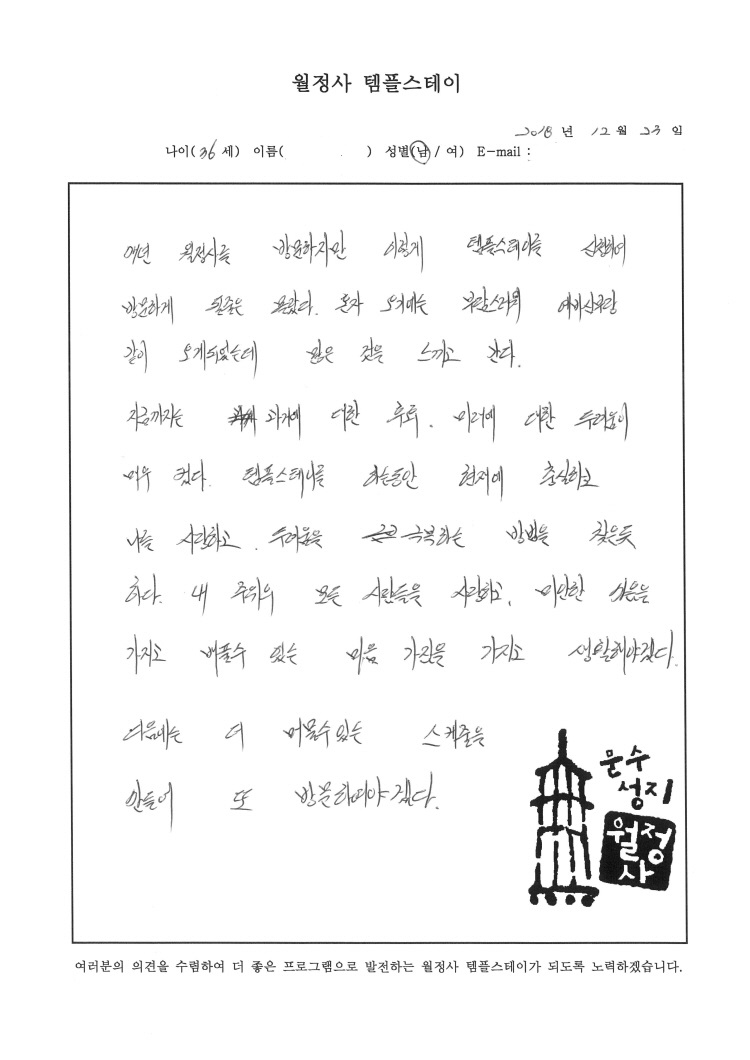 월정사 템플스테이
2018 년 12 월 23 일
나이( 36 세) 이름( ) 성별(남 / 여) E-mail :
매년 월정사를 방문하지만 이렇게 템플스테이를 신청하여
방문하게 될줄은 몰랐다. 혼자 오기에는 부담스러워 예비신랑
같이 오게되었는데 많은 것을 느끼고 간다.
지금까지는 과거에 대한 후회, 미래에 대한 두려움이
매우 컸다. 템플스테이를 하는동안 현재에 충실하고
나를 사랑하고, 두려움을 극복하는 방법을 찾은듯
하다. 내 주위의 모든 사람들을 사랑하고, 미안한 마음을
가지고 베풀수 있는 마음 가짐을 가지고 생활해야겠다.
다음에는 더 머물수있는 스케줄을
만들어 또 방문하여야겠다.
문수
성지
월정
사
여러분의 의견을 수렴하여 더 좋은 프로그램으로 발전하는 월정사 템플스테이가 되도록 노력하겠습니다.